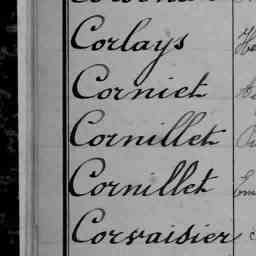 Corlays
Corniet
Cornillet
Cornillet
Corvaisier